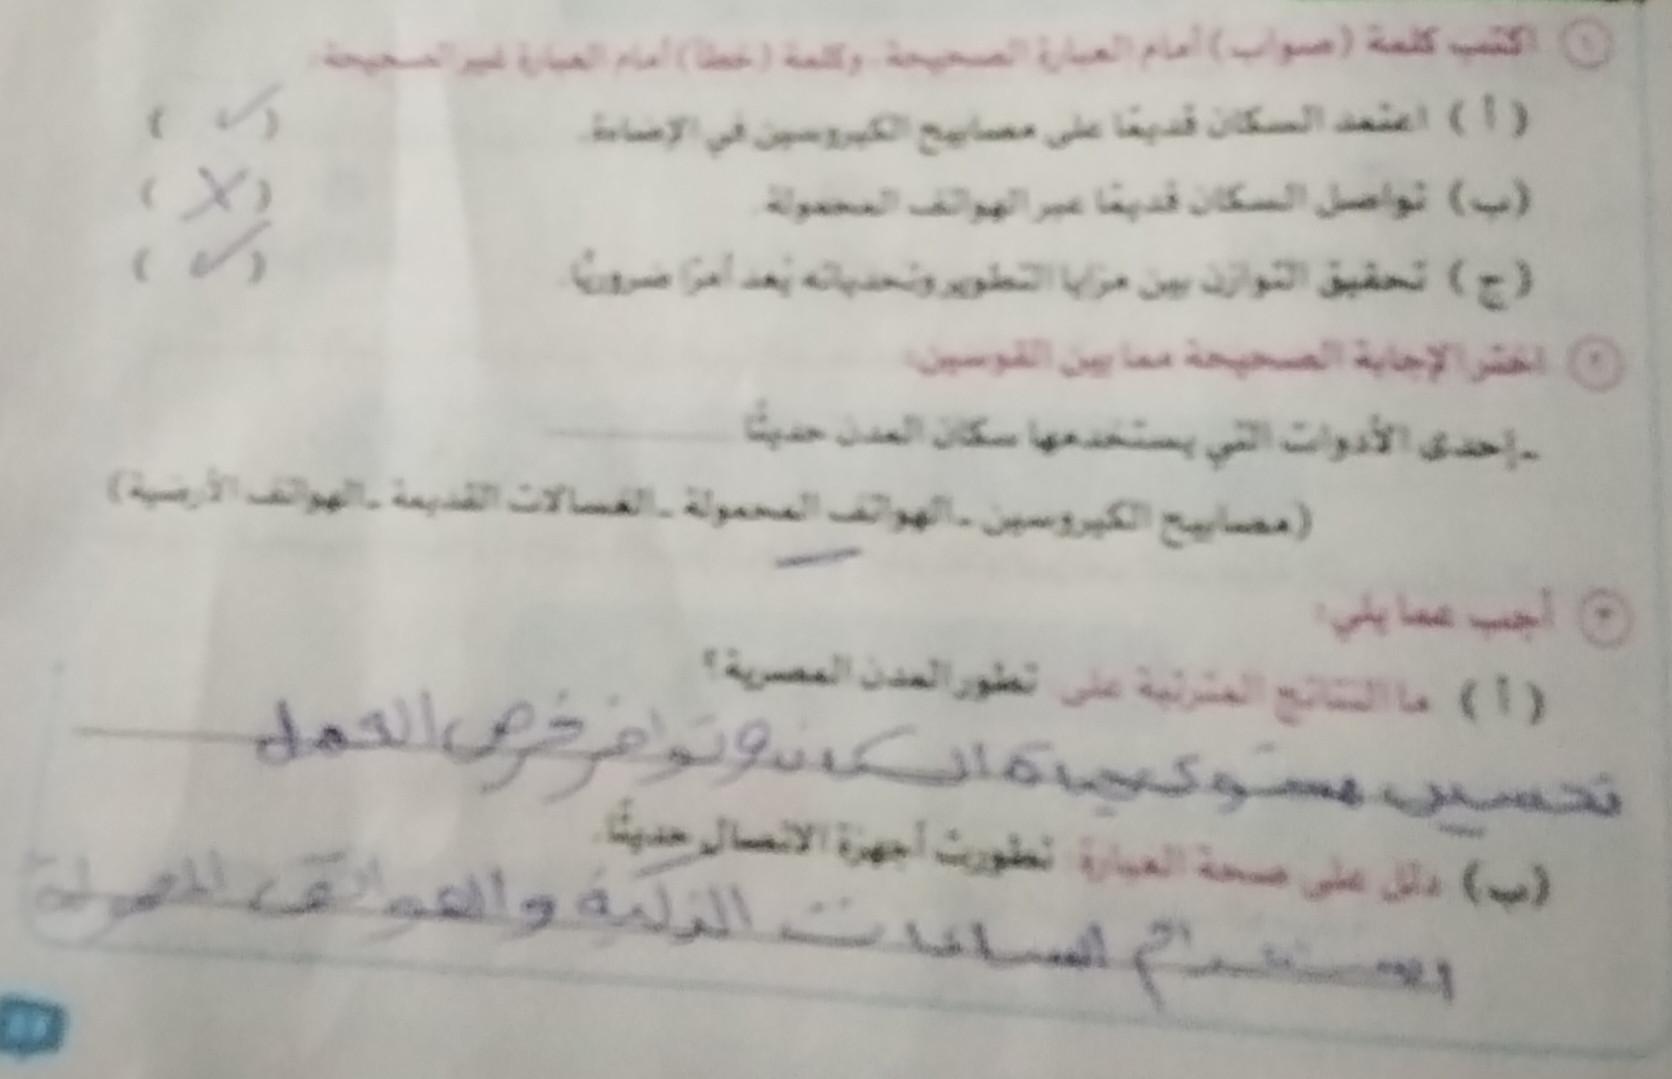 ١ اكتب كلمة (صواب) أمام العبارة الصحيحة، وكلمة (خطأ) أمام العبارة غير الصحيحة:
(أ) اعتمد السكان قديمًا على مصابيح الكيروسين في الإضاءة. (✓)
(ب) تواصل السكان قديمًا عبر الهواتف المحمولة. (X)
(ج) تحقيق التوازن بين مزايا التطوير وتحدياته يُعد أمرًا ضروريًّا. (✓)
٢ اختر الإجابة الصحيحة مما بين القوسين:
- إحدى الأدوات التي يستخدمها سكان المدن حديثًا
(مصابيح الكيروسين - الهواتف المحمولة - الغسالات القديمة - الهواتف الأرضية)
٣ أجب عما يلي:
(أ) ما النتائج المترتبة على تطور المدن المصرية؟
تحسين مستوى حياة السكان وتوافر فرص العمل
(ب) دلل على صحة العبارة: تطورت أجهزة الاتصال حديثًا.
الساعات الذكية والهواتف